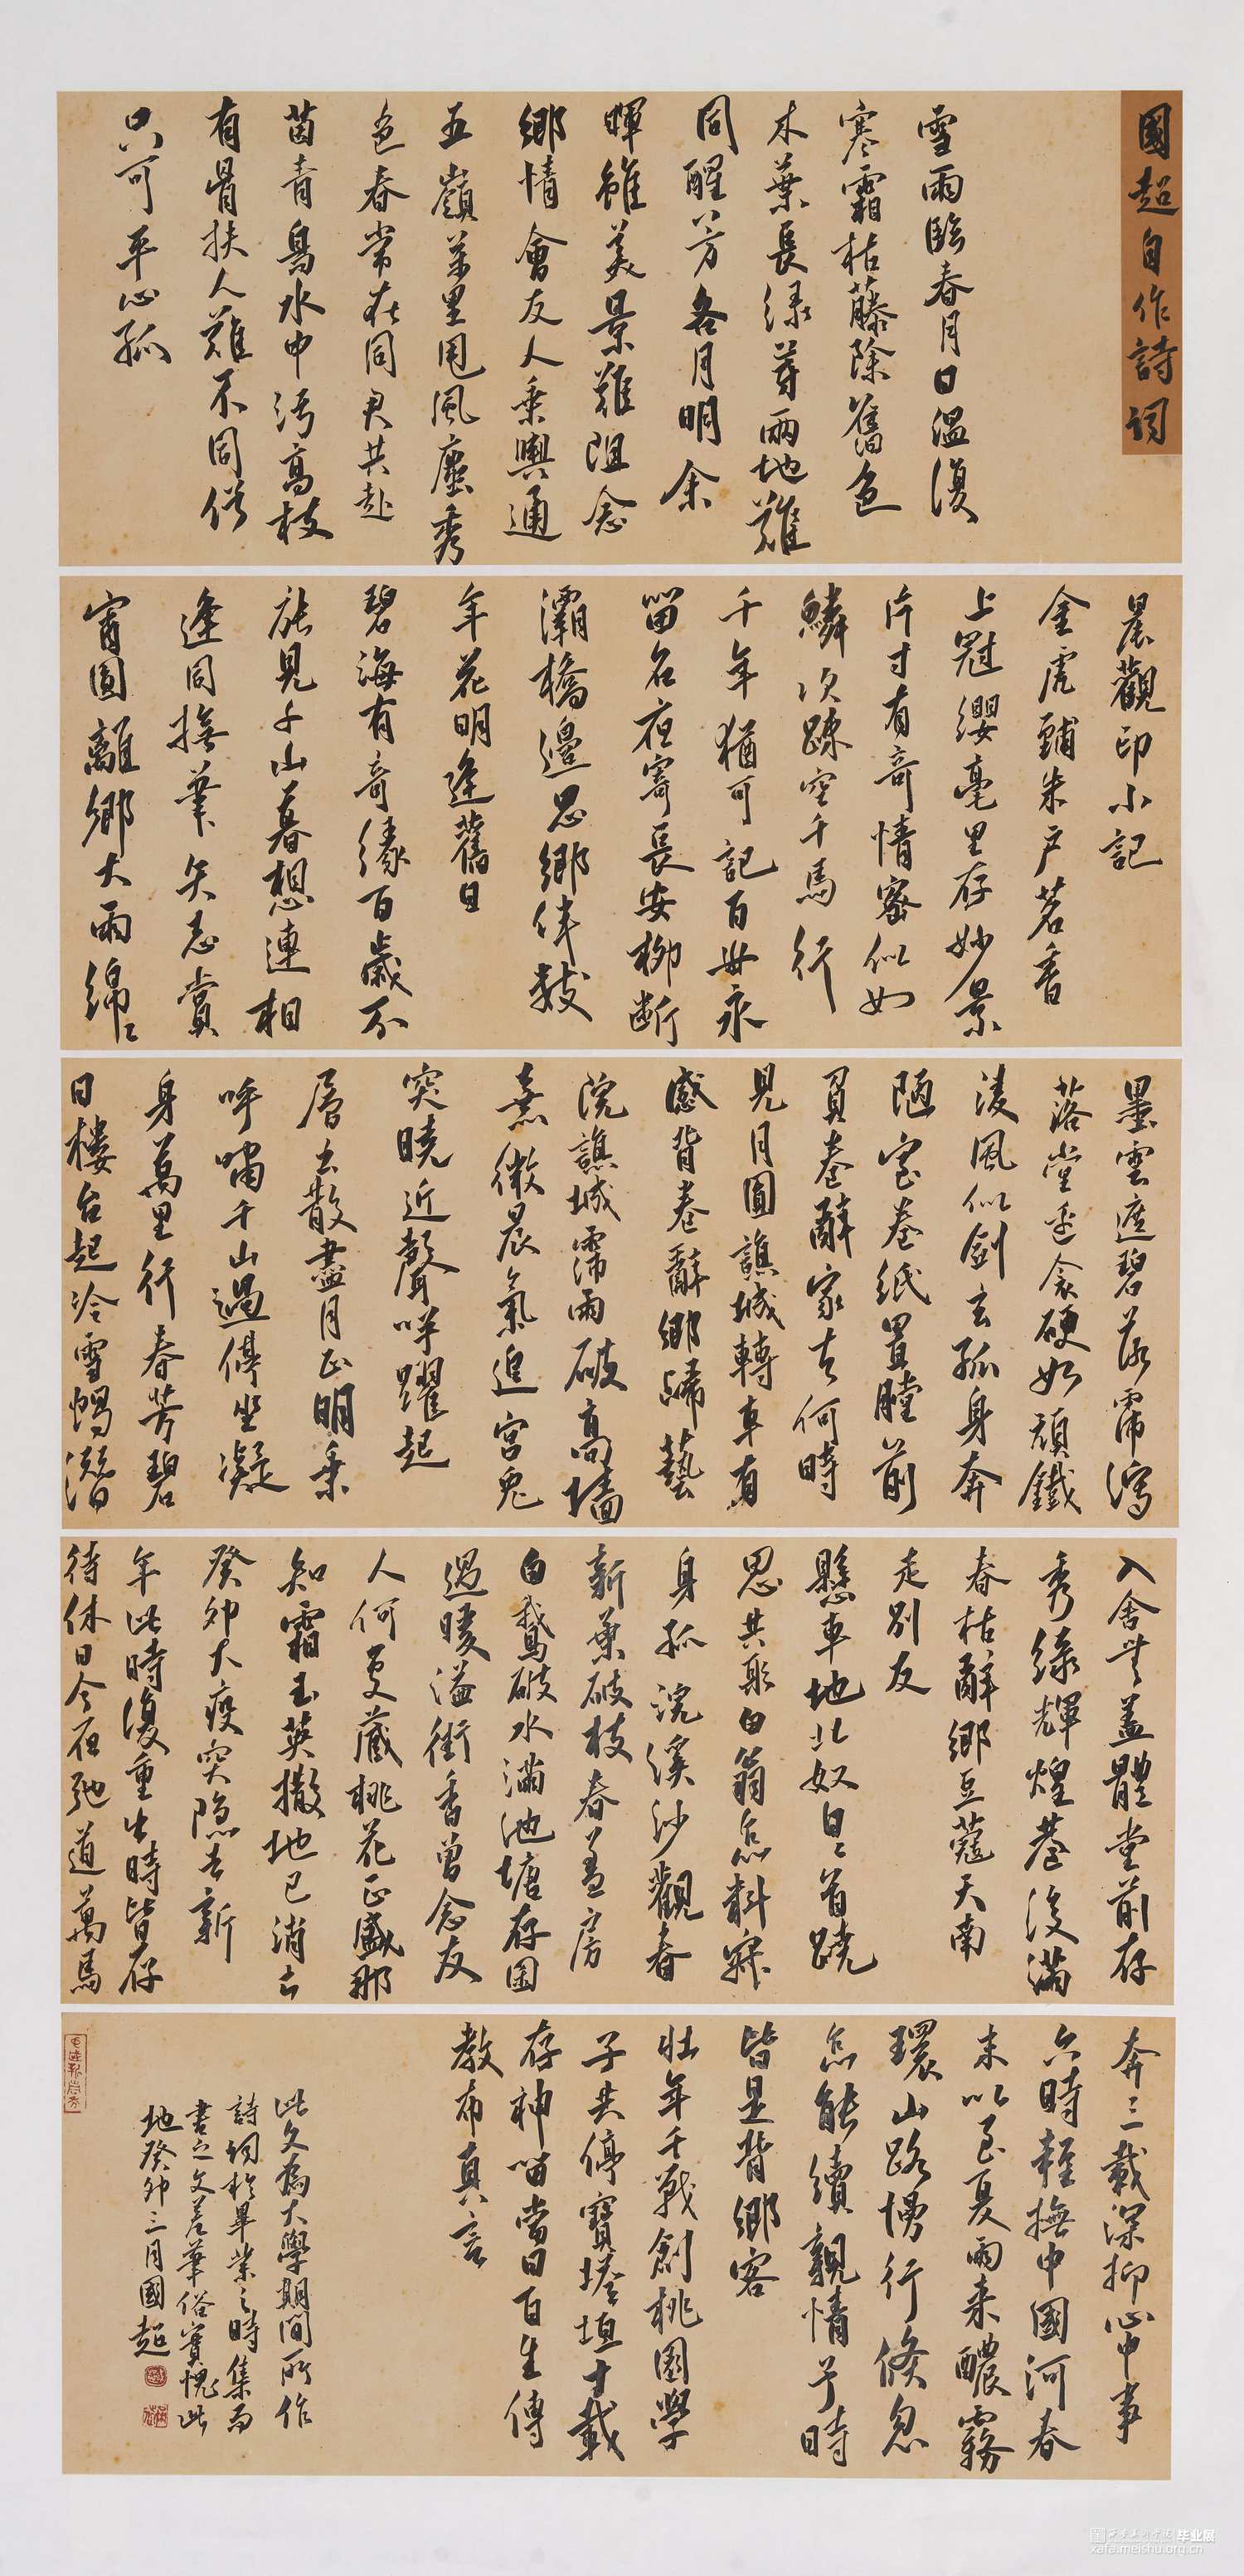 國超自作詩詞
雪雨臨春月日溫復
寒霜枯藤除舊色
木葉長綠芽兩地難
同醒芳各月明余
暉雖美景難阻念
鄉情會友人乘興通
五嶺萬里甩風塵秀
色春常在同君共赴
茵青鳥水中污高枝
有骨扶人難不同俗
只可平心孤
晨觀印小記
金虎鋪朱户茗香
上冠纓毫里存妙景
片寸有奇情密似如
鱗次疎空千馬行
千年猶可記百世永
留名夜寄長安柳斷
灞橋邊思鄉伴數
年花明逢舊日
碧海有奇緣百歲不
能見千山暮想連相
逢同撫筆矢志賞
宵圓離鄉大雨綿綿
墨雲遮碧落霈瀉
落堂逆衾硬如頑鐵
淩風似劍玄孤身奔
陋室卷紙置膛前
負卷辭家去何時
見月圓譙城轉車有
感背卷辭鄉歸藝
院譙城霈雨破高墻
熹微晨氣追宮兔
突曉近聲咩躍起
層雲散盡月正明乘
呼嘯千山過停坐凝
身萬里行春芳碧
日樓台起冷雪惕潛
入舍無蓋體堂前存
秀綠輝煌巷沒滿
春枯辭鄉豆蔻天南
走別友
懸車地北奴自首蹺
思共聚白翁怎料寐
身孤浣溪沙觀春
新葉破枝春蓋房
白鵝破水滿池塘存園
過暖溢街香曾念友
人何更藏桃花正盛那
知霜玉英撒地已消亡
癸卯大疫突隱去新
年此時復重生時皆存
待休日今夜馳道萬馬
奔三載深抑心中事
六時輕撫中國河春
未以至夏雨来醲霧
環山路慢行倏忽
怎能續親情於時
皆是背鄉客
壯年千戰劍桃園學
子共停寶塔垣十載
存神留當日百生傳
教布真言
此文為大學期間所作
詩詞於畢業之時集而
書之文差華俗實愧此
地癸卯三月國超
畢业展
xafa.meishu.org.cn